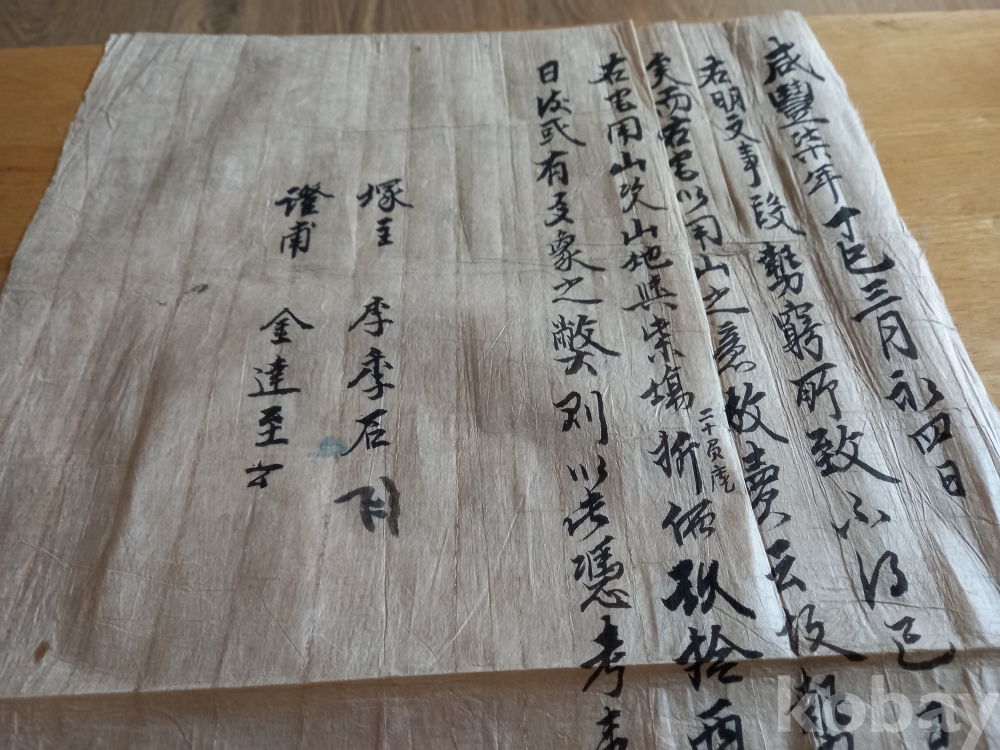 咸豐柒年丁巳三月初四日
右明文事段勢窮所致不得已
矣而右宅以用山之意放賣云故
右宅用山次山地與柴場二十員庫折価玖拾兩
日後或有之弊則以此憑考事
塚主 李季石
證甫 金達至
kobay